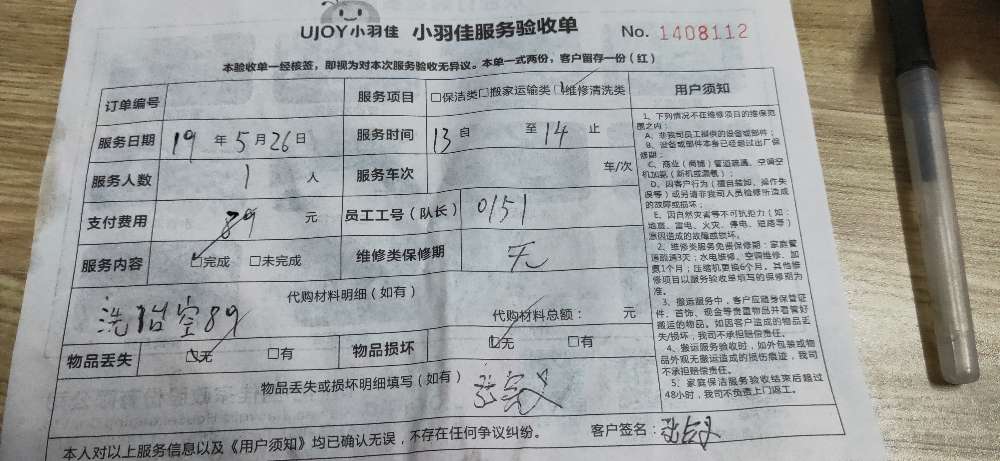 UJOY小羽佳 小羽佳服务验收单 No. 1408112
本验收单一经核签，即视为对本次服务验收无异议。本单一式两份，客户留存一份（红）
订单编号 服务项目 □保洁类□搬家运输类□维修清洗类
服务日期 19 年 5 月 26 日 服务时间 13 自 至 14 止
服务人数 1 人 服务车次 车/次
支付费用 89 元 员工工号（队长） 0151
服务内容 □完成 □未完成 维修类保修期 无
代购材料明细（如有）
洗 空89 代购材料总额： 元
物品丢失 □无 □有 物品损坏 □无 □有
物品丢失或损坏明细填写（如有）
本人对以上服务信息以及《用户须知》均已确认无误，不存在任何争议纠纷。 客户签名：
用户须知
1、下列情况不在维修项目的维保范
围之内：
A、非我司员工提供的设备或部件；
B、设备或部件本身已经超过出厂保
修期；
C、商业（商铺）管道疏通、空调空
机加氨（新机或漏氨）；
D、因客户行为（擅自装卸、操作失
误等）或另请非我司人员检修所造成
的故障或损坏；
E、因自然灾害等不可抗拒力（如：
地震、雷电、火灾、停电、短路等）
原因造成的故障或损坏。
2、维修类服务免费保修期：家庭管
道疏通3天；水电维修、空调维修、加
氨1个月；压缩机更换6个月。其他维
修项目以服务验收单填写的保修期为
准。
3、搬运服务中，客户应随身保管证
件、首饰、现金等贵重物品并看管好
搬运的物品。如因客户造成的物品丢
失/损坏，我司不承担赔偿责任。
4、搬运服务验收时，如外包装或物
品外观无搬运造成的损伤痕迹，我司
不承担赔偿责任。
5、家庭保洁服务验收结束后超过
48小时，我司不负责上门返工。